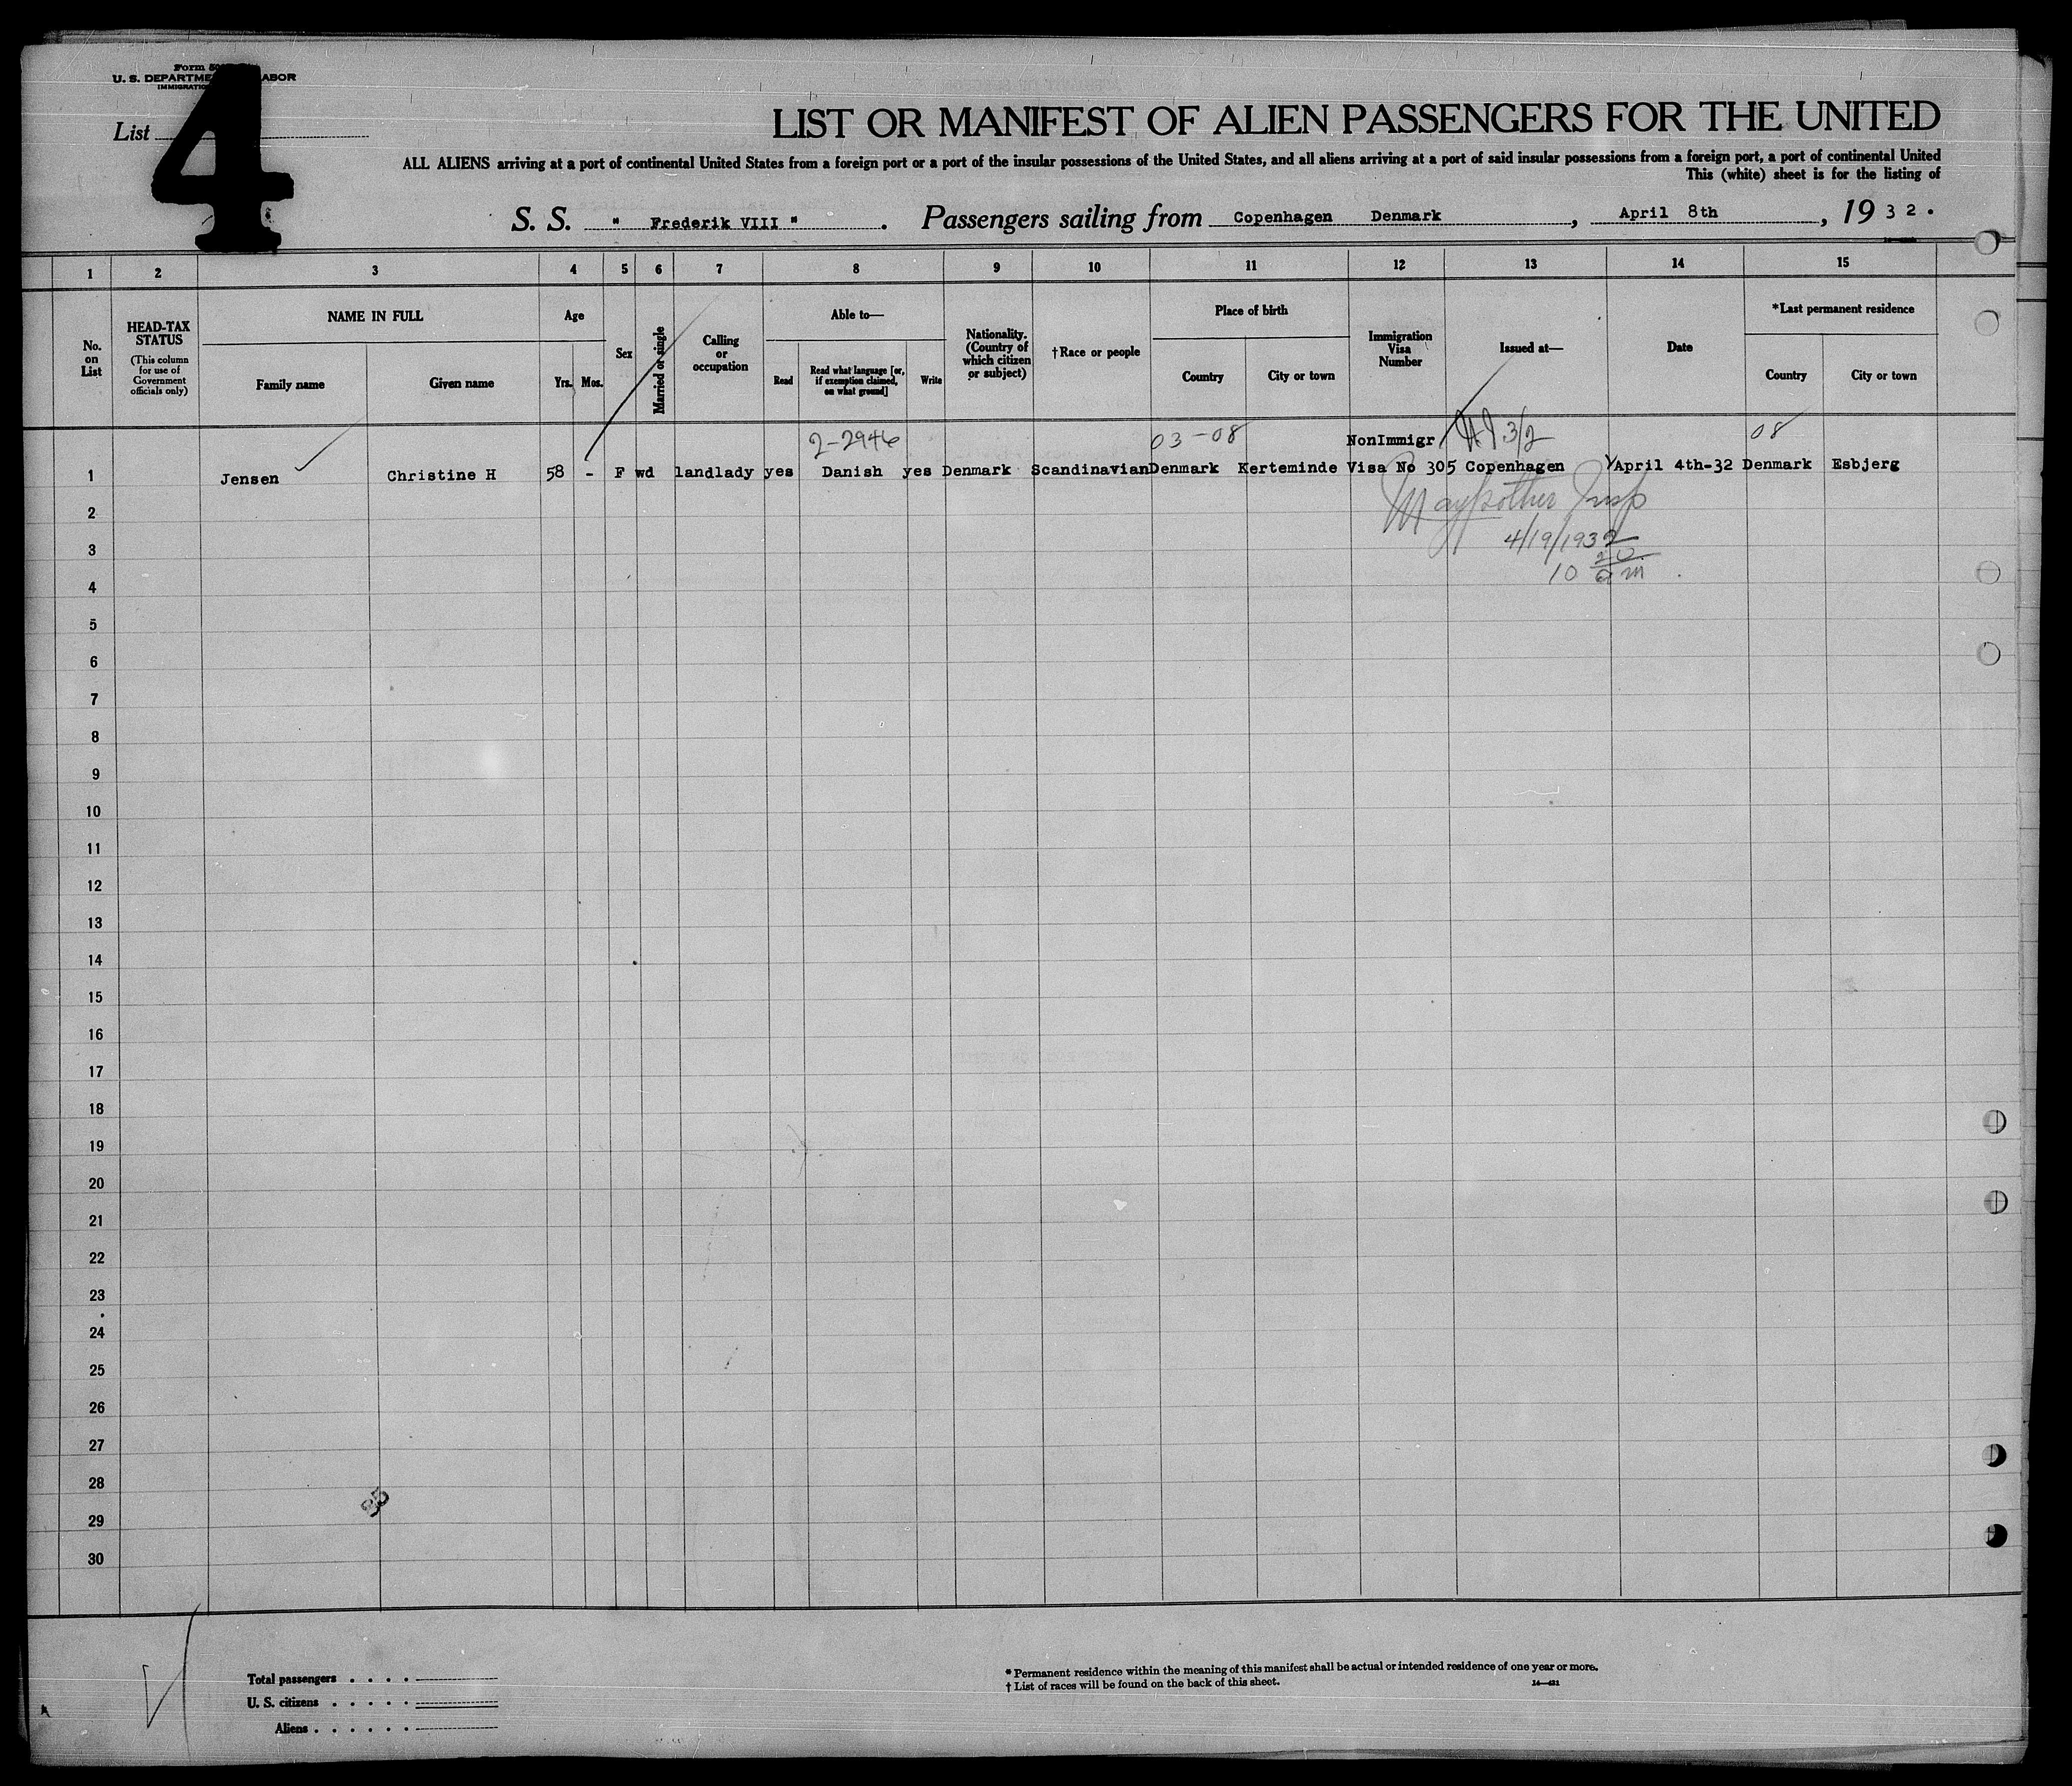 Form 50
U. S. DEPARTME ABOR
IMMIGRATIO
List
4
LIST OR MANIFEST OF ALIEN PASSENGERS FOR THE UNITED
ALL ALIENS arriving at a port of continental United States from a foreign port or a port of the insular possessions of the United States, and all aliens arriving at a port of said insular possessions from a foreign port, a port of continental United
This (white) sheet is for the listing of
S. S. " Frederik VIII " . Passengers sailing from Copenhagen Denmark , April 8th , 19 3 2 .
1 2 3 4 5 6 7 8 9 10 11 12 13 14 15
No. on List
HEAD-TAX STATUS
(This column for use of Government officials only)
NAME IN FULL
Family name
Given name
Age
Yrs. Mos.
Sex
Married or single
Calling or occupation
Able to—
Read
Read what language [or, if exemption claimed, on what ground]
Write
Nationality. (Country of which citizen or subject)
†Race or people
Place of birth
Country
City or town
Immigration Visa Number
Issued at—
Date
*Last permanent residence
Country
City or town
2-2946 03-08 NonImmigr 3/2 08
1 Jensen Christine H 58 - F wd landlady yes Danish yes Denmark Scandinavian Denmark Kerteminde Visa No 305 Copenhagen April 4th-32 Denmark Esbjerg
2
Insp
3
4/19/1932
4
10 20 am
5
6
7
8
9
10
11
12
13
14
15
16
17
18
19
20
21
22
23
24
25
26
27
28
35
29
30
Total passengers . . . .
U. S. citizens . . . . .
Aliens . . . . . .
* Permanent residence within the meaning of this manifest shall be actual or intended residence of one year or more.
† List of races will be found on the back of this sheet.
14—421